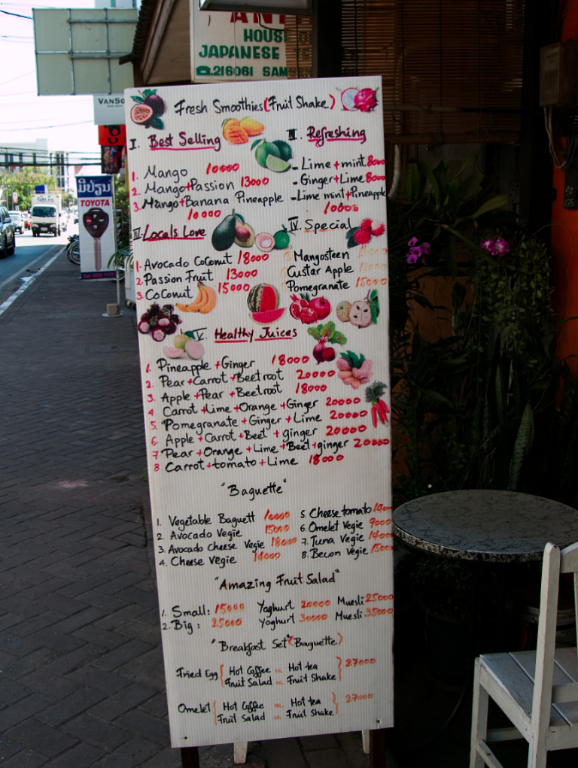 HOUSE
JAPANESE
216061
VANSO
ມິປຽນ
TOYOTA
Fresh Smoothies (Fruit Shake)
I. Best Selling
1. Mango 10000
2. Mango+Passion 13000
3. Mango+Banana Pineapple 10000
III. Refreshing
- Lime+mint 8000
- Ginger+Lime 8000
- Lime mint+Pineapple 10000
II. Locals Love
1. Avocado Coconut 18000
2. Passion Fruit 13000
3 Coconut 15000
IV. Special
Mangosteen
Custar Apple
Pomegranate 15000
V. Healthy Juices
1. Pineapple+Ginger 18000
2. Pear+Carrot+Beetroot 20000
3. Apple+Pear+Beetroot 18000
4 Carrot+Lime+Orange+Ginger 20000
5 Pomegranate+Ginger+Lime 20000
6 Apple+Carrot+Beet+ginger 20000
7 Pear+Orange+Lime+Beet+ginger 20000
8 Carrot+tomato+Lime 18000
"Baguette"
1. Vegetable Baguett 10000
2. Avocado Vegie 15000
3. Avocado cheese Vegie 18000
4. Cheese Vegie 14000
5 Cheese tomato
6. Omelet Vegie 9000
7. Tuna Vegie 14000
8. Becon Vegie 15000
"Amazing Fruit Salad"
1. Small: 15000 Yoghurt 20000 Muesli 25000
2. Big: 25000 Yoghurt 30000 Muesli 35000
"Breakfast Set (Baguette)
Fried Egg { Hot Coffee or Hot tea } 27000
Fruit Salad or Fruit Shake
Omelet { Hot Coffee or Hot tea } 27000
Fruit Salad or Fruit Shake